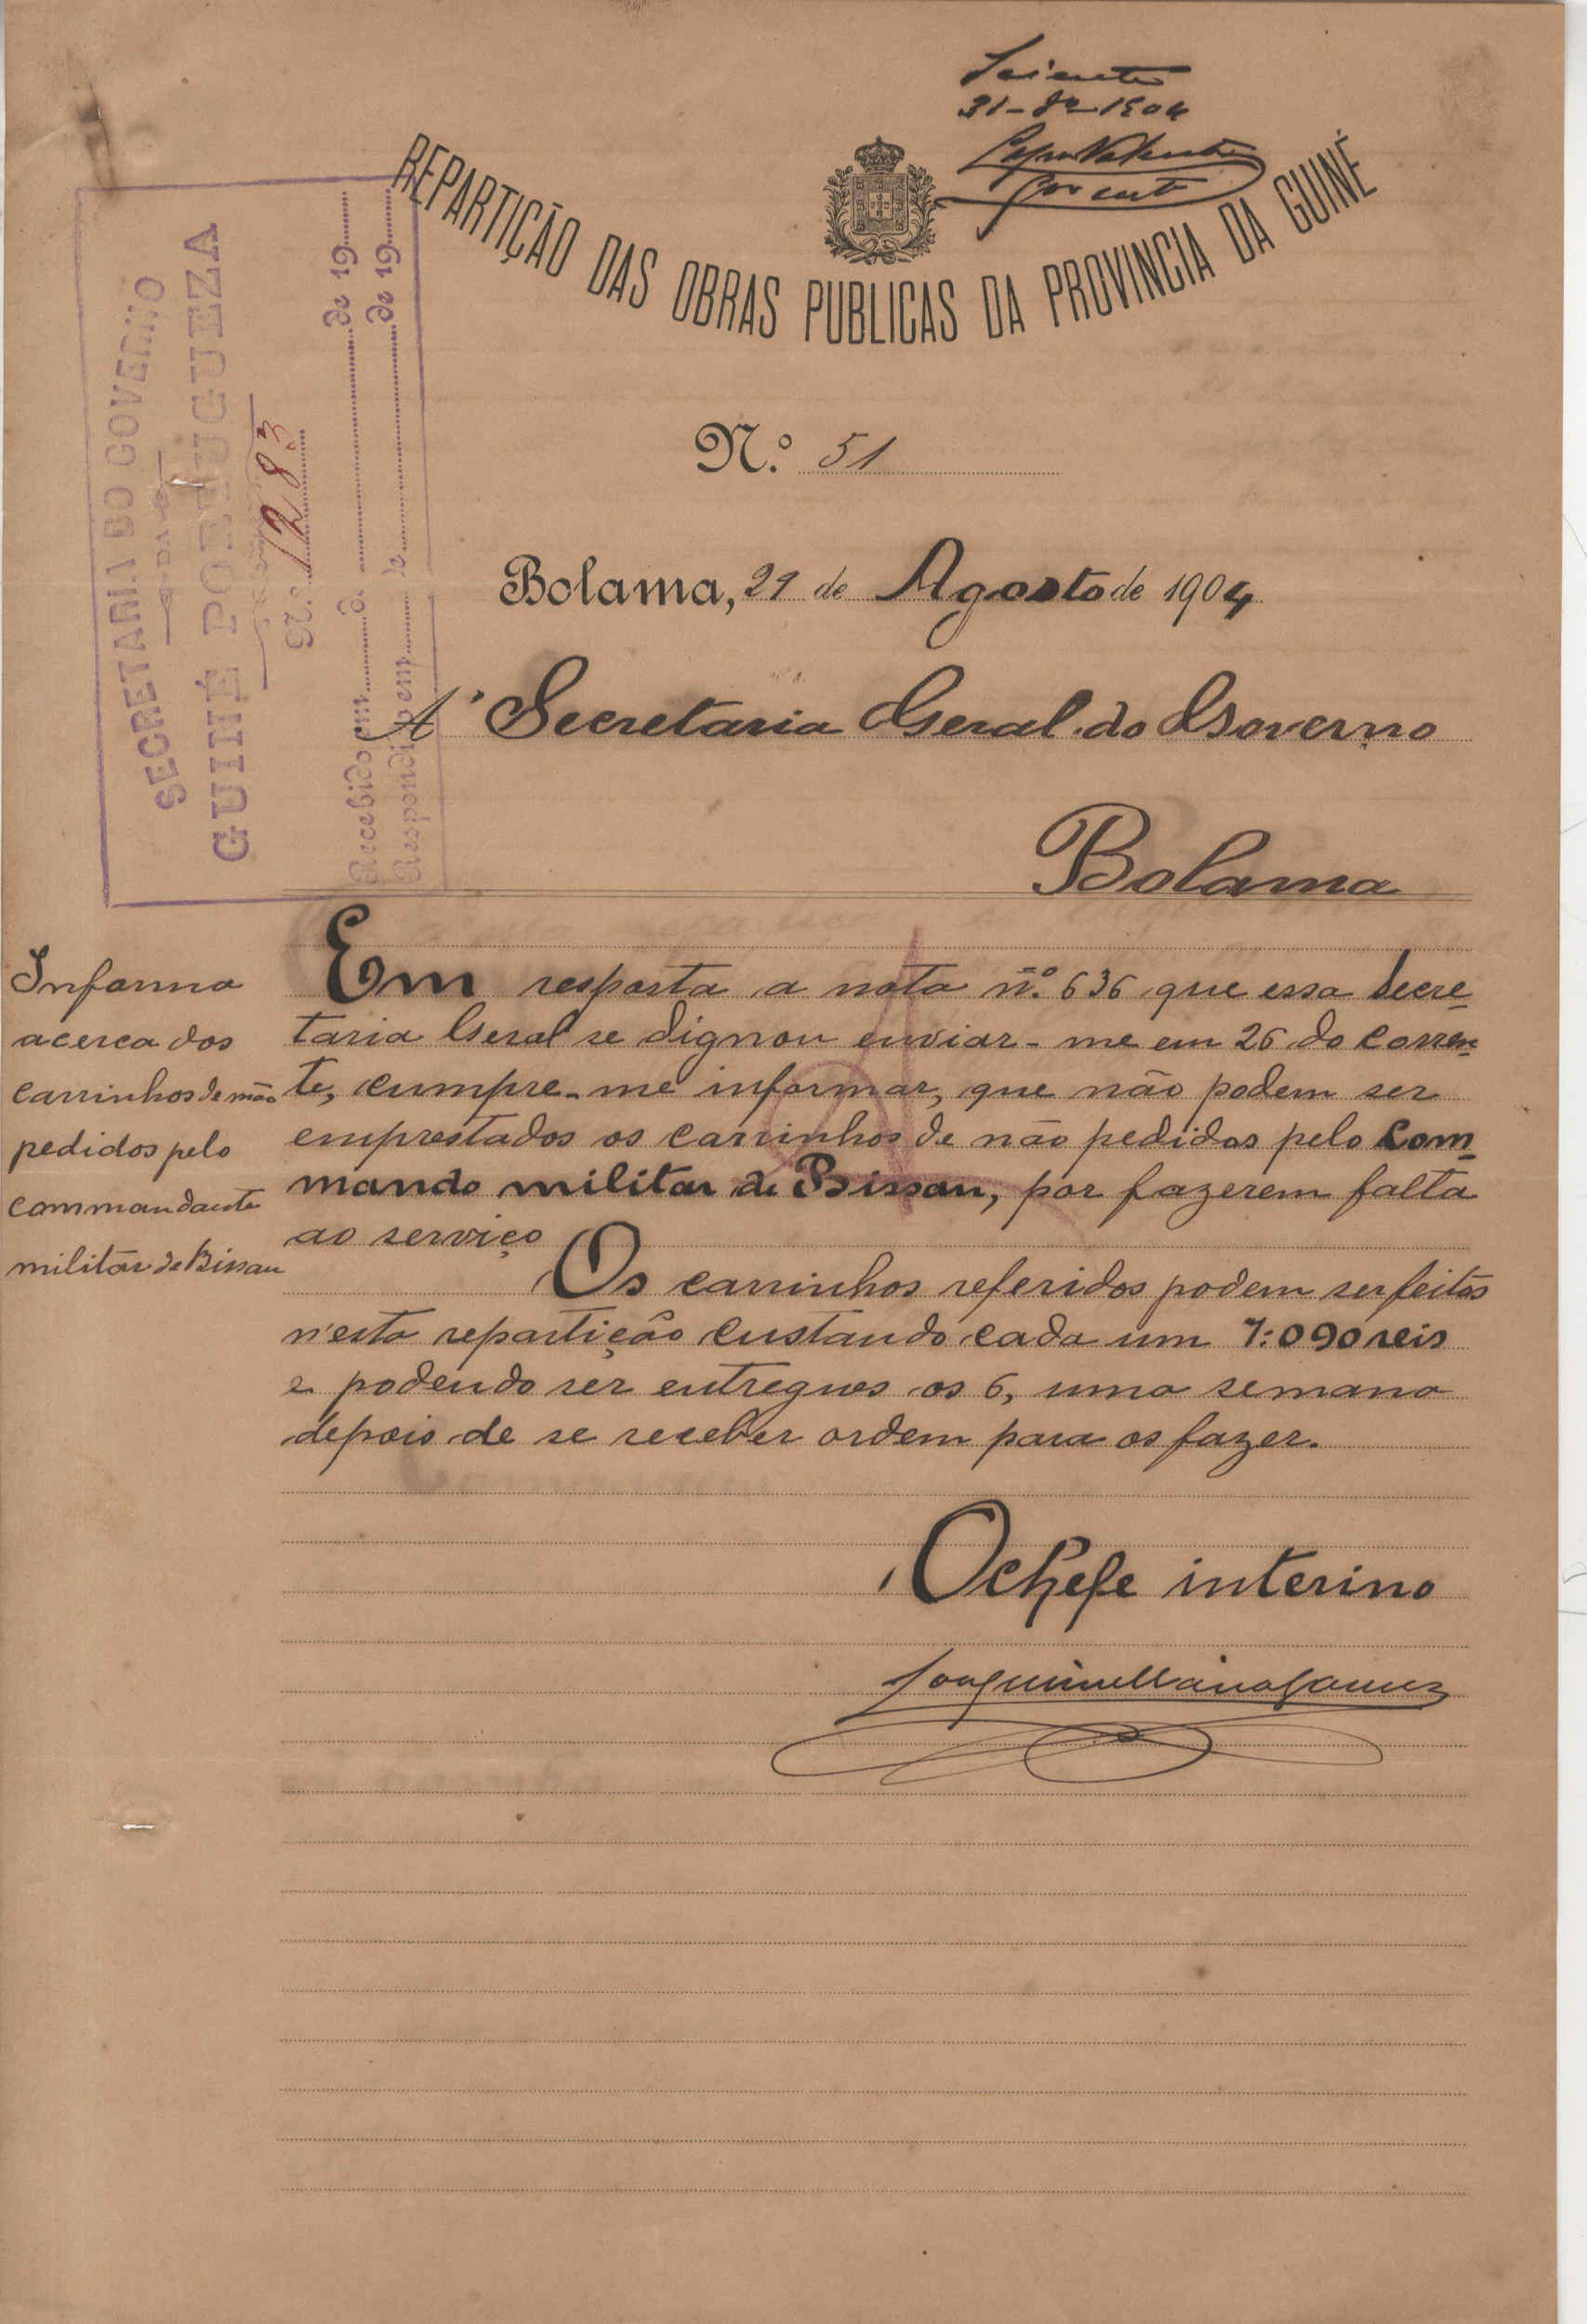 Sciente
31-8º-1904
REPARTIÇÃO DAS OBRAS PUBLICAS DA PROVINCIA DA GUINÉ
SECRETARIA DO GOVERNO
DA
GUINÉ PORTUGUEZA
N.º 1283
Recebido em de de 19
Respondido em de de 19
N.º 51
Bolama, 29 de Agosto de 1904
A' Secretaria Geral do Governo
Bolama
Informa
acerca dos
carrinhos de mão
pedidos pelo
commandante
militar de Bissau
Em resposta a nota n.º 636 que essa Secre-
taria Geral se dignou enviar-me em 26 do corren-
te, cumpre-me informar, que não podem ser
emprestados os carrinhos de não pedidos pelo Com-
mando militar de Bissau, por fazerem falta
ao serviço
Os carrinhos referidos podem ser feitos
n'esta repartição custando cada um 7:090 reis
e podendo ser entregues os 6, uma semana
depois de se receber ordem para os fazer.
O chefe interino